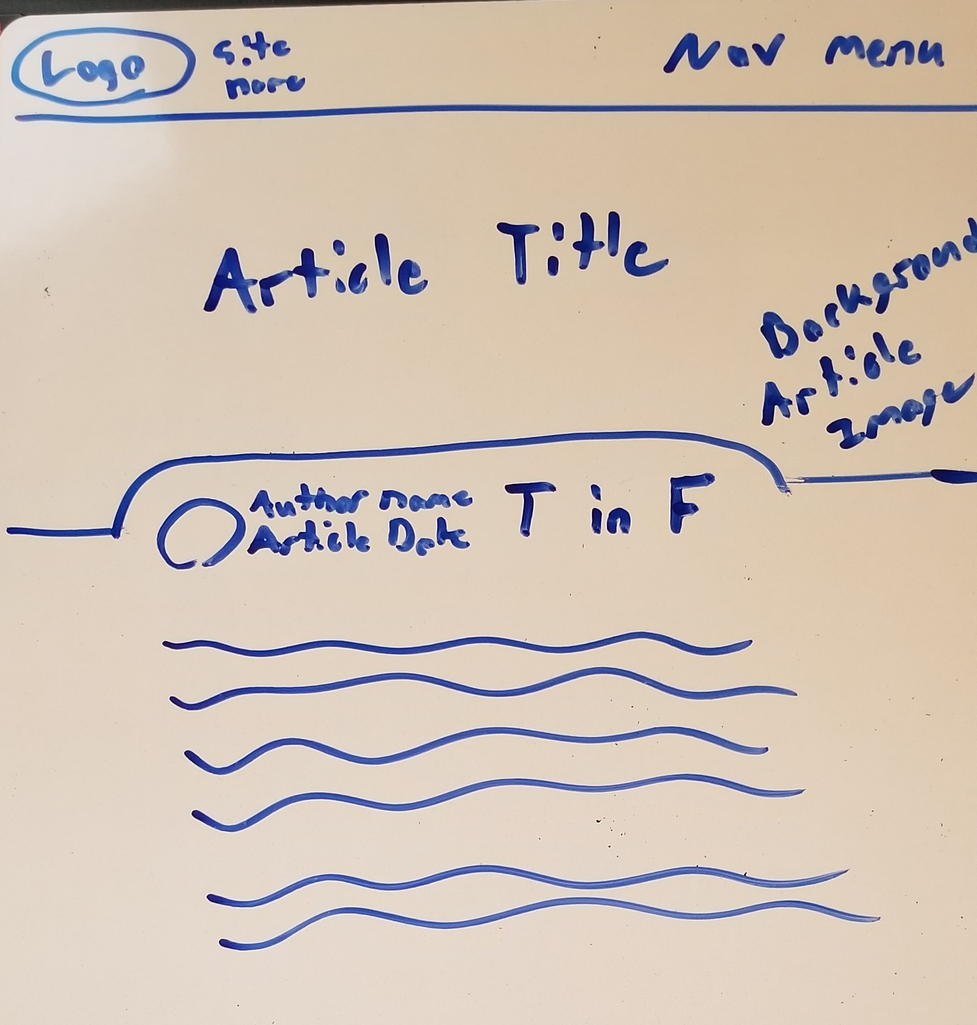 Logo
Site
name
Nav menu
Article Title
Background
Article
Image
Author name
Article Date
T in F